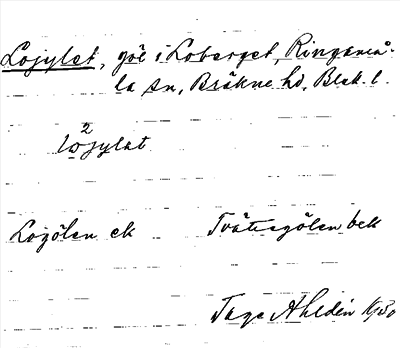 Lojylet, göl i Loberget, Ringamå-
la sn, Bräkne hd, Blek. l.
2
lojylet
Logölen ek
Tvättegölen bek
Tage Ahldén 1930